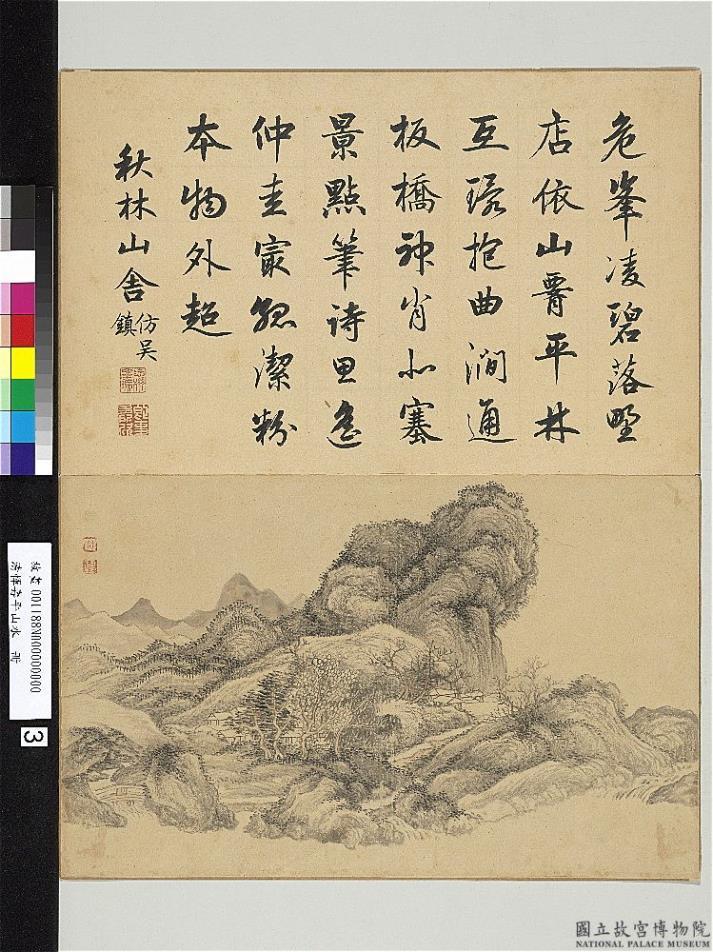 危峯凌碧落野
店依山平林
互環抱曲澗通
板橋神肖北塞
景點筆詩思遙
仲圭潔粉
本物外超
秋林山舍
仿吳
鎮
故畫 001188N000000000
山水 冊
3
國立故宮博物院
NATIONAL PALACE MUSEUM